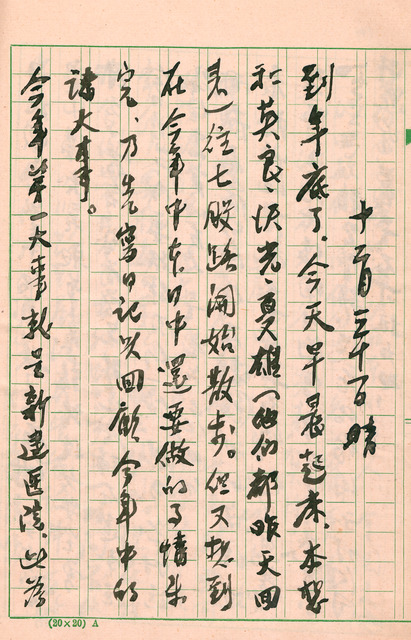 十二月三十一日 晴
到年底了。今天早晨起来,本想
和英良、庆光、夏雄(他们都昨天回
来)往七股路开始散步。但又想到
在今年中本日中還要做的事情未
完、乃先寫日記以回顧今年中的
諸大事。
今年第一大事就是新建医院,此為
(20×20) A